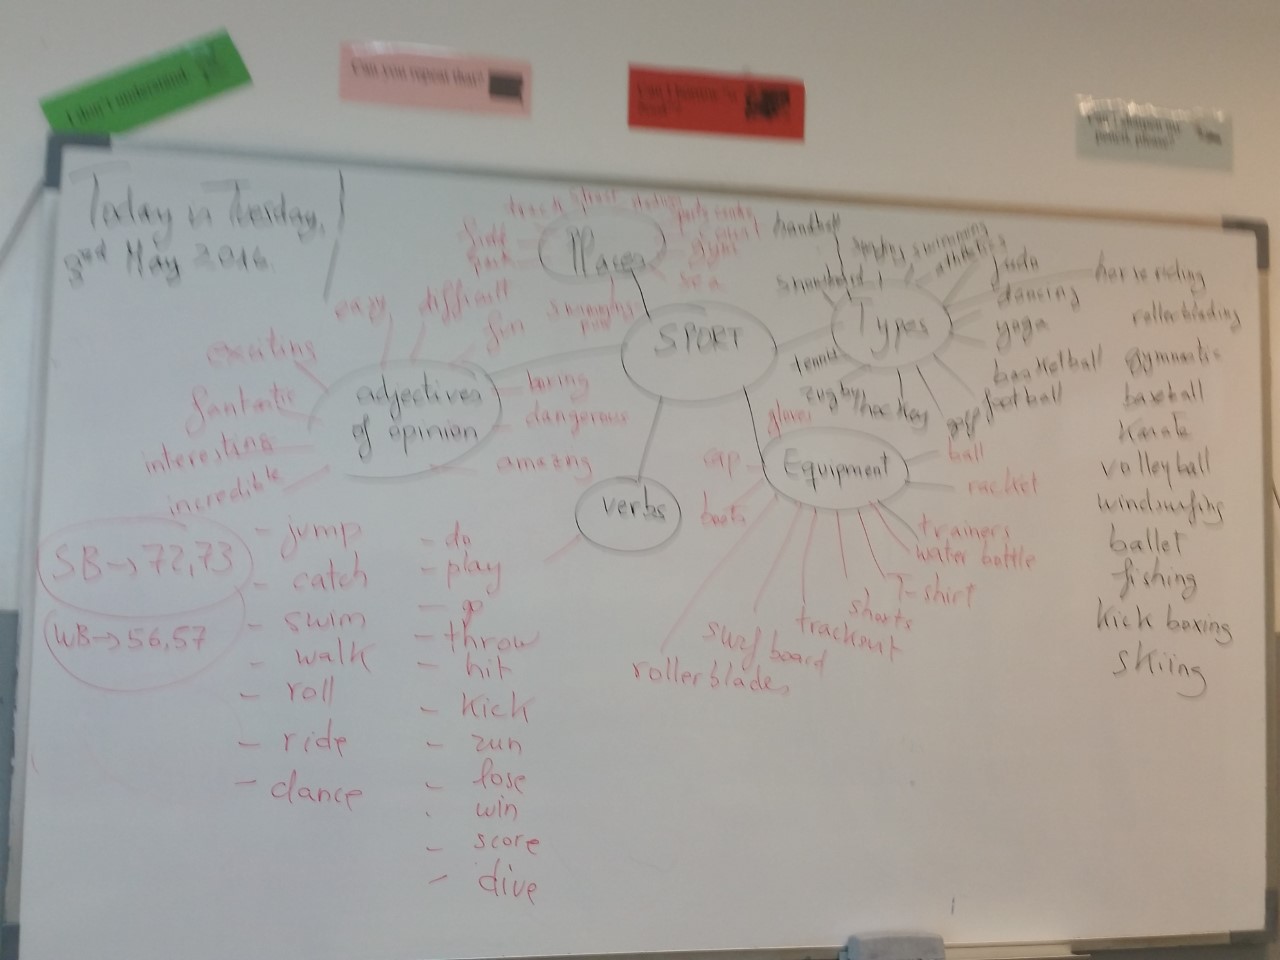 I don't understand
Can you repeat that?
Can I borrow
Can I sharpen my
pencil please?
Today is Tuesday,
3rd May 2016.
SPORT
Places
track street
field
park
gym
sea
swimming
pool
Types
handball
swimming
athletics
judo
horse riding
dancing
rollerblading
yoga
gymnastic
basketball
baseball
football
karate
golf
volleyball
hockey
windsurfing
rugby
ballet
tennis
fishing
snowboard
kick boxing
skiing
adjectives
of opinion
easy
difficult
fun
exciting
fantastic
interesting
incredible
boring
dangerous
amazing
Equipment
gloves
cap
boots
ball
racket
trainers
water bottle
T-shirt
shorts
trackout
surf board
rollerblades
verbs
- jump
- catch
- swim
- walk
- roll
- ride
- dance
- do
- play
- go
- throw
- hit
- kick
- run
- lose
- win
- score
- dive
SB → 72,73
WB → 56,57